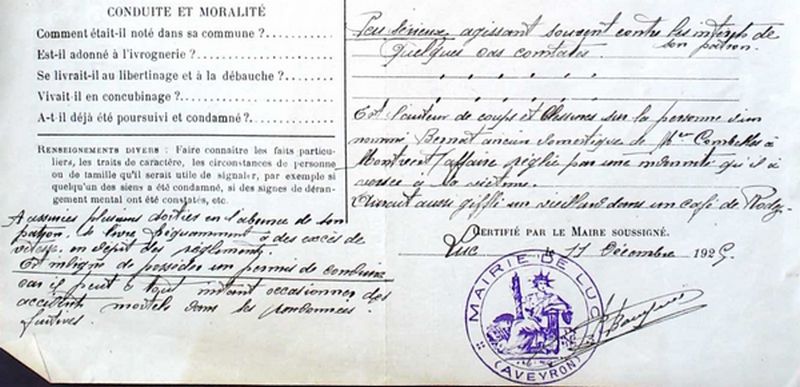 CONDUITE ET MORALITÉ
Comment était-il noté dans sa commune ?
Est-il adonné à l'ivrognerie ?
Se livrait-il au libertinage et à la débauche ?
Vivait-il en concubinage ?
A-t-il déjà été poursuivi et condamné ?
RENSEIGNEMENTS DIVERS : Faire connaître les faits particu-
liers, les traits de caractère, les circonstances de personne
ou de famille qu'il serait utile de signaler, par exemple si
quelqu'un des siens a été condamné, si des signes de déran-
gement mental ont été constatés, etc.
A plusieurs sorties en l'absence de son
patron. Se livre fréquemment à des excès de
vitesse en dépit des règlements.
Est indigne de posséder un permis de conduire
car il peut à tout instant occasionner des
accidents mortels dans les randonnées
furtives.
Peu sérieux agissant souvent contre les intérêts de
son patron.
Quelques cas constatés.
Est l'auteur de coups et blessures sur la personne d'un
nommé Bernat ancien domestique de Mr Combelles à
affaire réglée par une indemnité qu'il a
versée à la victime.
Aurait aussi giflé un vieillard dans un café de Rodez
CERTIFIÉ PAR LE MAIRE SOUSSIGNÉ.
Luc le 17 Décembre 1925
MAIRIE DE LUC
(AVEYRON)